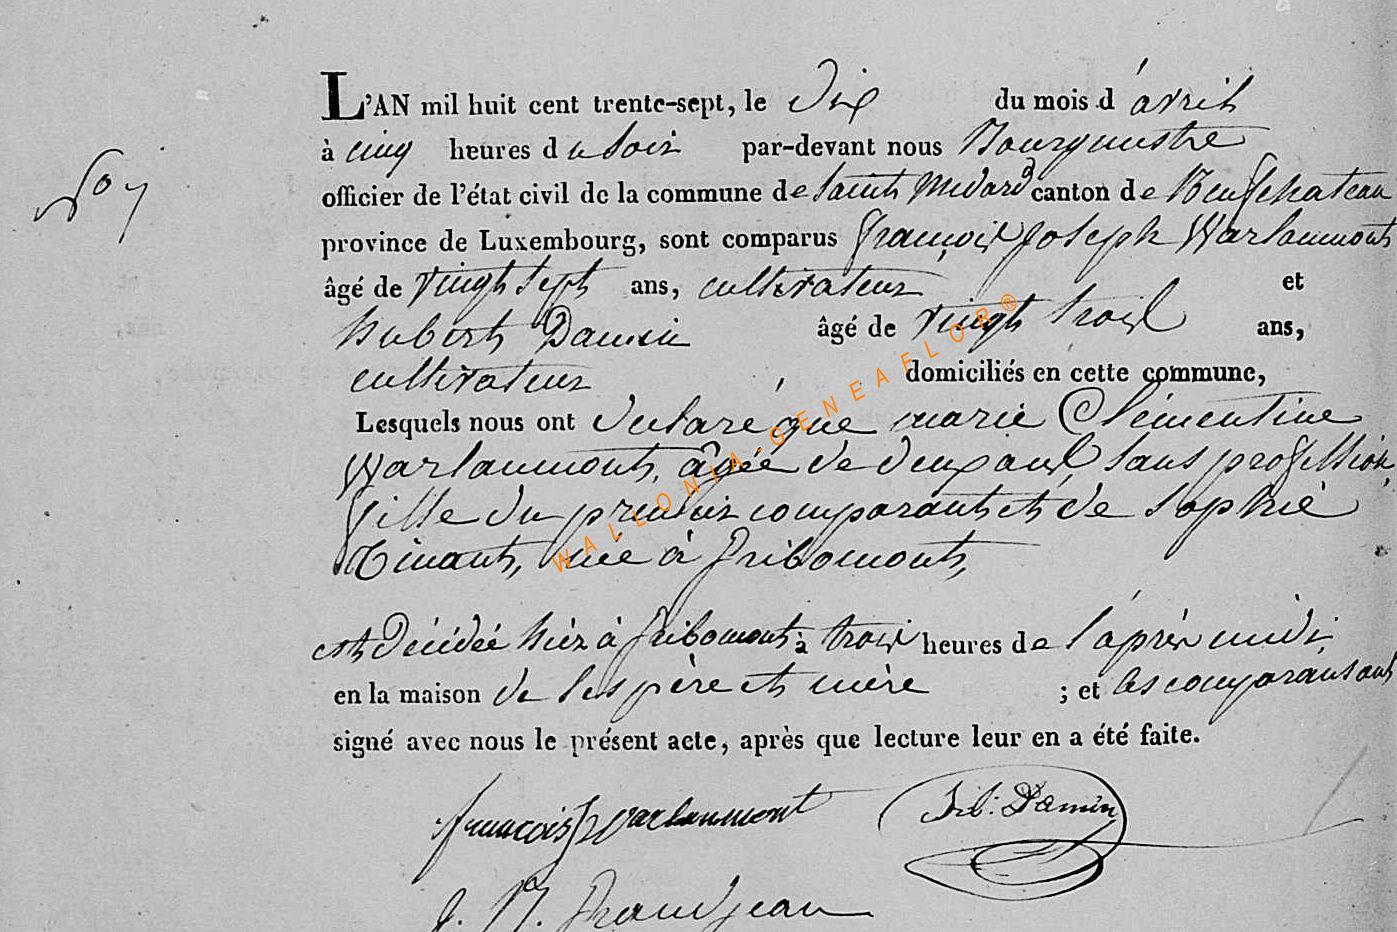 L'AN mil huit cent trente-sept, le Dix du mois d'avril
à cinq heures du soir par-devant nous Bourgmestre
officier de l'état civil de la commune de Saint Médard canton de Neufchateau
province de Luxembourg, sont comparus françois Joseph Warlaumont
âgé de vingt sept ans, cultivateur et
hubert Damin âgé de vingt trois ans,
cultivateur, domiciliés en cette commune,
Lesquels nous ont déclaré que marie Clémentine
Warlaumont, âgée de deux ans, sans profession,
fille du premier comparant et de Sophie
Tinant, née à fribomont,
est décédée hier à fribomont à trois heures de l'après midi,
en la maison de ses père et mère ; et les comparans ont
signé avec nous le présent acte, après que lecture leur en a été faite.
françois J Warlaumont hb: Damin
WALLONIA-GENEAFLOR®